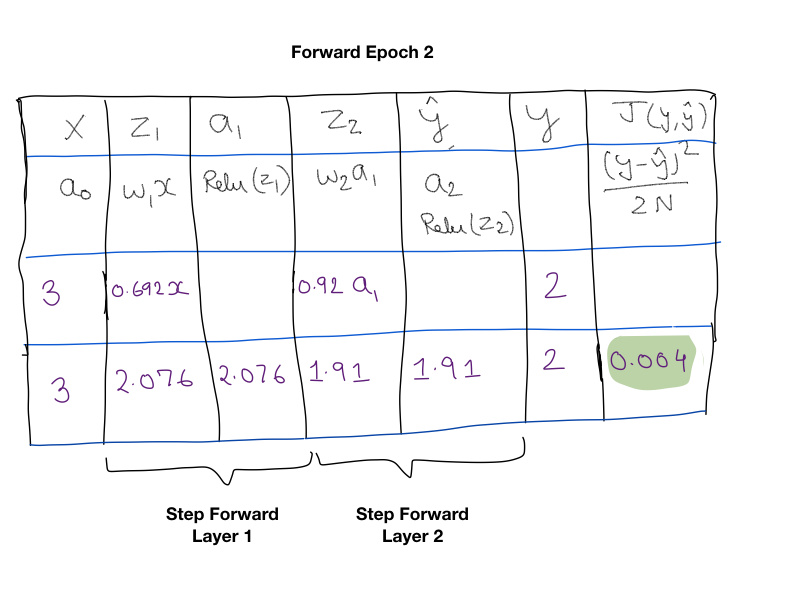 Forward Epoch 2
x z₁ a₁ z₂ ŷ y J(y,ŷ)
a₀ w₁x Relu(z₁) w₂a₁ a₂ (y-ŷ)²
Relu(z₂) 2N
3 0.692x 0.92 a₁ 2
3 2.076 2.076 1.91 1.91 2 0.004
Step Forward Step Forward
Layer 1 Layer 2